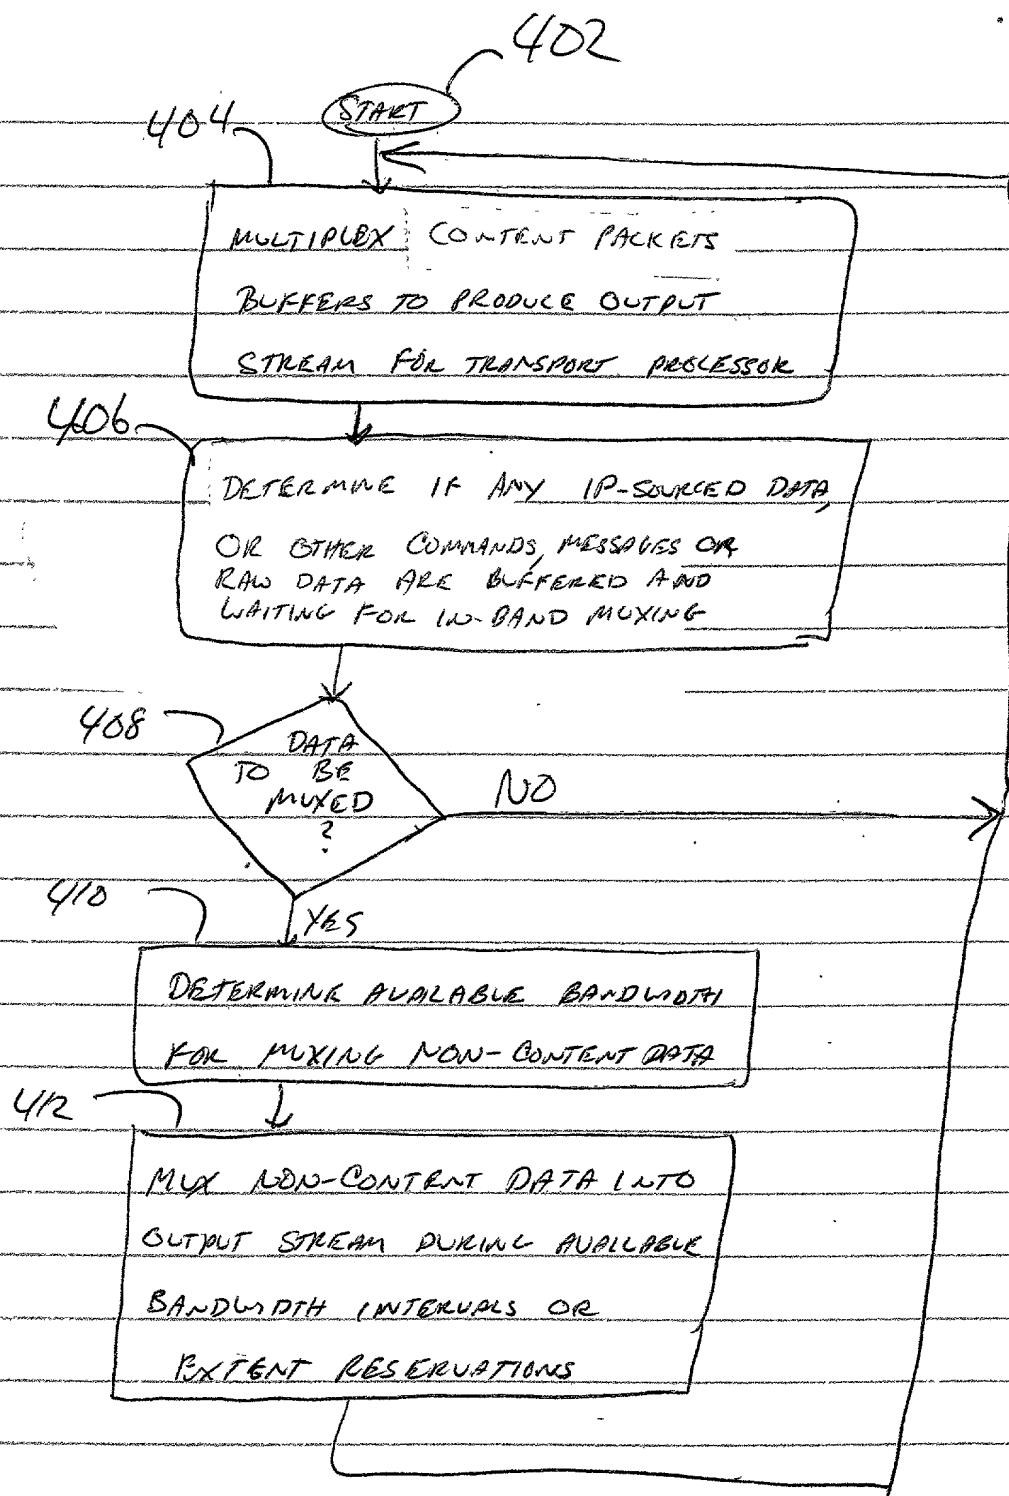 402
START
404
MULTIPLEX CONTENT PACKETS
BUFFERS TO PRODUCE OUTPUT
STREAM FOR TRANSPORT PROCESSOR
406
DETERMINE IF ANY IP-SOURCED DATA,
OR OTHER COMMANDS, MESSAGES OR
RAW DATA ARE BUFFERED AND
WAITING FOR IN-BAND MUXING
408
DATA
TO BE
MUXED
?
NO
YES
410
DETERMINE AVAILABLE BANDWIDTH
FOR MUXING NON-CONTENT DATA
412
MUX NON-CONTENT DATA INTO
OUTPUT STREAM DURING AVAILABLE
BANDWIDTH INTERVALS OR
EXTENT RESERVATIONS